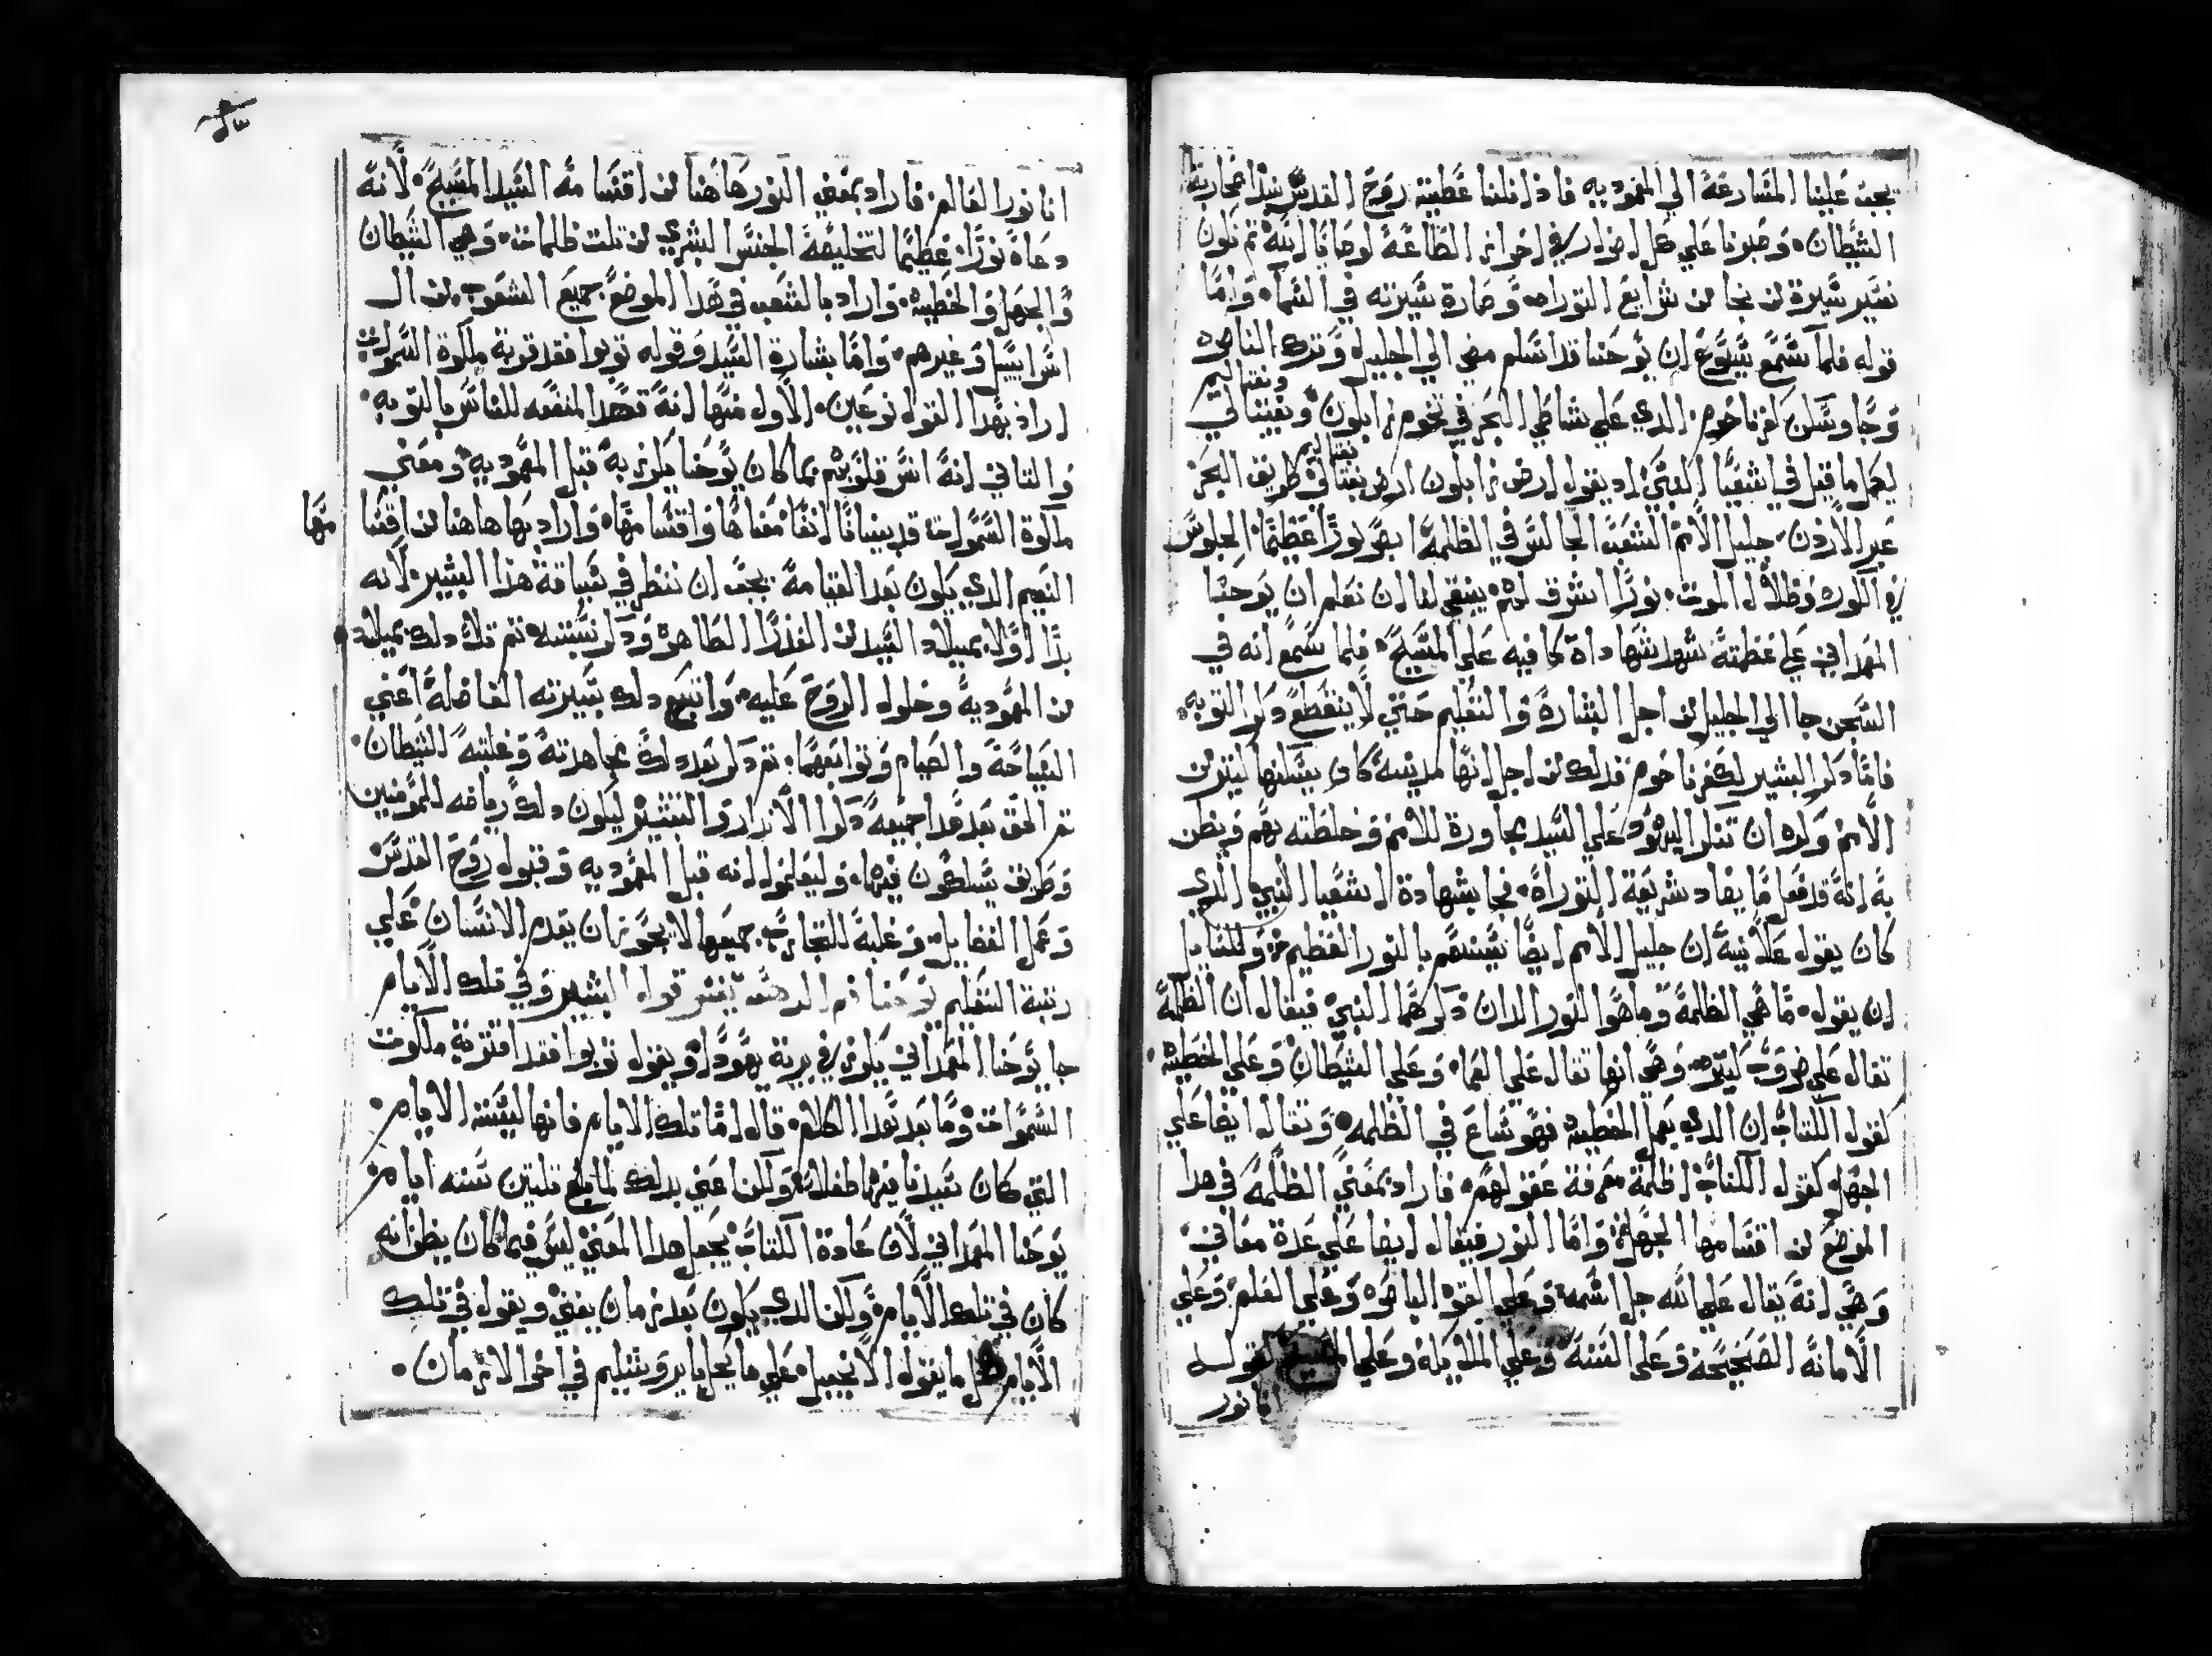 يجب علينا المسارعة الي المعموديه فاذا نلنا عطية روح القدس بدا بمحاربة
الشيطان وصبرنا علي كل اضرار في احوانر الطاعة لوصايا الله تم نكون
نسير سيرة من نجا من شرايع التوراه وصارة سيرته في السما واما
قوله فلما سمع يسوع ان يوحنا قد اسلم مضي الي الجليل وترك الناصره
ونفتاليم
وجا وسكن كفرناحوم الدي علي شاطي البحر في تخوم زابلون ونفتالي
نفتاليم
ليكمل ما قيل في اشعيا النبي اد يقول ارض زابلون ارض نفتالي طريق البحر
عبر الاردن جليل الامم الشعب الجالس في الظلمة ابصر نورا عظيما الجلوس
في الكوره وظلال الموت نورا اشرق لهم ينبغي لنا ان نعلم ان يوحنا
المعمداني علي عظمته شهد شهاداة كافيه علي المسيح فلما سمع انه في
السجن جا الي الجليل من اجل البشارة والتعليم حتي لا ينقطع دكر التوبه
فاما دكر البشير لكفرناحوم فدلك من اجل انها مدينة كان يسكنها ليترين
الامم وكره ان تنكر اليهود علي السيد مجاورة للامم وخلطته بهم ويظن
به انه قد فعل ما يضاد شريعة التوراة فجا بشهادة اشعيا النبي الدي
كان يقول علانية ان جليل الامم ايضا يستنعم بالنور العظيم وللقايل
ان يقول ما هي الظلمة وما هوا النور الدان دكرهما النبي فيقال ان الظلمة
تقال علي ضروب كتيره وهي انها تقال علي العما وعلي الشيطان وعلي الخطية
لقول الكتاب ان الدي يعمل الخطية فهو ساع في الظلمه وتقال ايضا علي
الجهل كقول الكتاب اظلمة معرفة عقولهم فاراد بمعني الظلمة في هدا
الموضع من اقسامها الجهل واما النور فيقال ايضا علي عدة معاني
وهي انه يقال علي الله جل اسمه وعلي القوه الباصره وعلي العلم وعلي
الامانه الصحيحة وعلي السنه وعلي الملايكه وعلي المسيح لقوله
انا نور
انا نور العالم فاراد بمعني النور هاهنا من اقسامه السيد المسيح لانه
دعاه نورا عظيما لتخليصة الجنس البشري من تلت ظلمات وهي الشيطان
والجهل والخطية واراد بالشعب في هدا الموضع جميع الشعوب من ال
اسراييل وغيرهم واما بشارة السيد وقوله توبوا فقد قربة ملكوة السموات
اراد بهدا القول نوعين الاول منها انه قصد المنفعه للناس بالتوبه
والتاني انه انس قلوبهم بما كان يوحنا يكرز به قبل المعموديه ومعني
ملكوة السموات قد بينا انفا معناها واقسامها واراد بها هاهنا من اقسا
مها
النعيم الدي يكون بعد القيامة يجب ان ننظر في سياقة هدا البشير لانه
بدا اولا بميلاد السيد من العذرا الطاهره ودكر نسبته تم تلا دلك بميلاده
من المعمودية وحلول الروح عليه واتبع دلك بسيرته الفاضلة اعني
السياحة والصيام وتوابعهما تم دكر بعد دلك مجاهدته وغلبته الشيطان
تم الحق بعد هدا جميعه دكر الاندار والتبشير ليكون دلك رياضه للمومنين
وطريق يسلكون فيها وليعلموا انه قبل المعموديه وقبول روح القدس
وعمل الفضايل وغلبة للتجارب جميعها لا يجوز ان يقدم الانسان علي
رتبة التعليم يوحنا فم الدهب يفسر قول البشير وفي تلك الايام
جا يوحنا المعمداني يكرز في برية يهودا ويقول توبوا فقد اقتربة ملكوت
السموات وما بعد هدا الكلام قال اما تلك الايام فانها ليست الايام
التي كان سيدنا فيها طفلا ولكن اعني بدلك لما بلغ تلتين سنه ايام
يوحنا المعمداني لان عادة الكتاب يجعل هدا المعني ليس فيما كان يظن انه
كان في تلك الايام ولكن الدي يكون بعد زمان يعني ويقول في تلك
الايام كل ما يقول الانجيل علي ما يحل بايروشليم في اخر الازمان